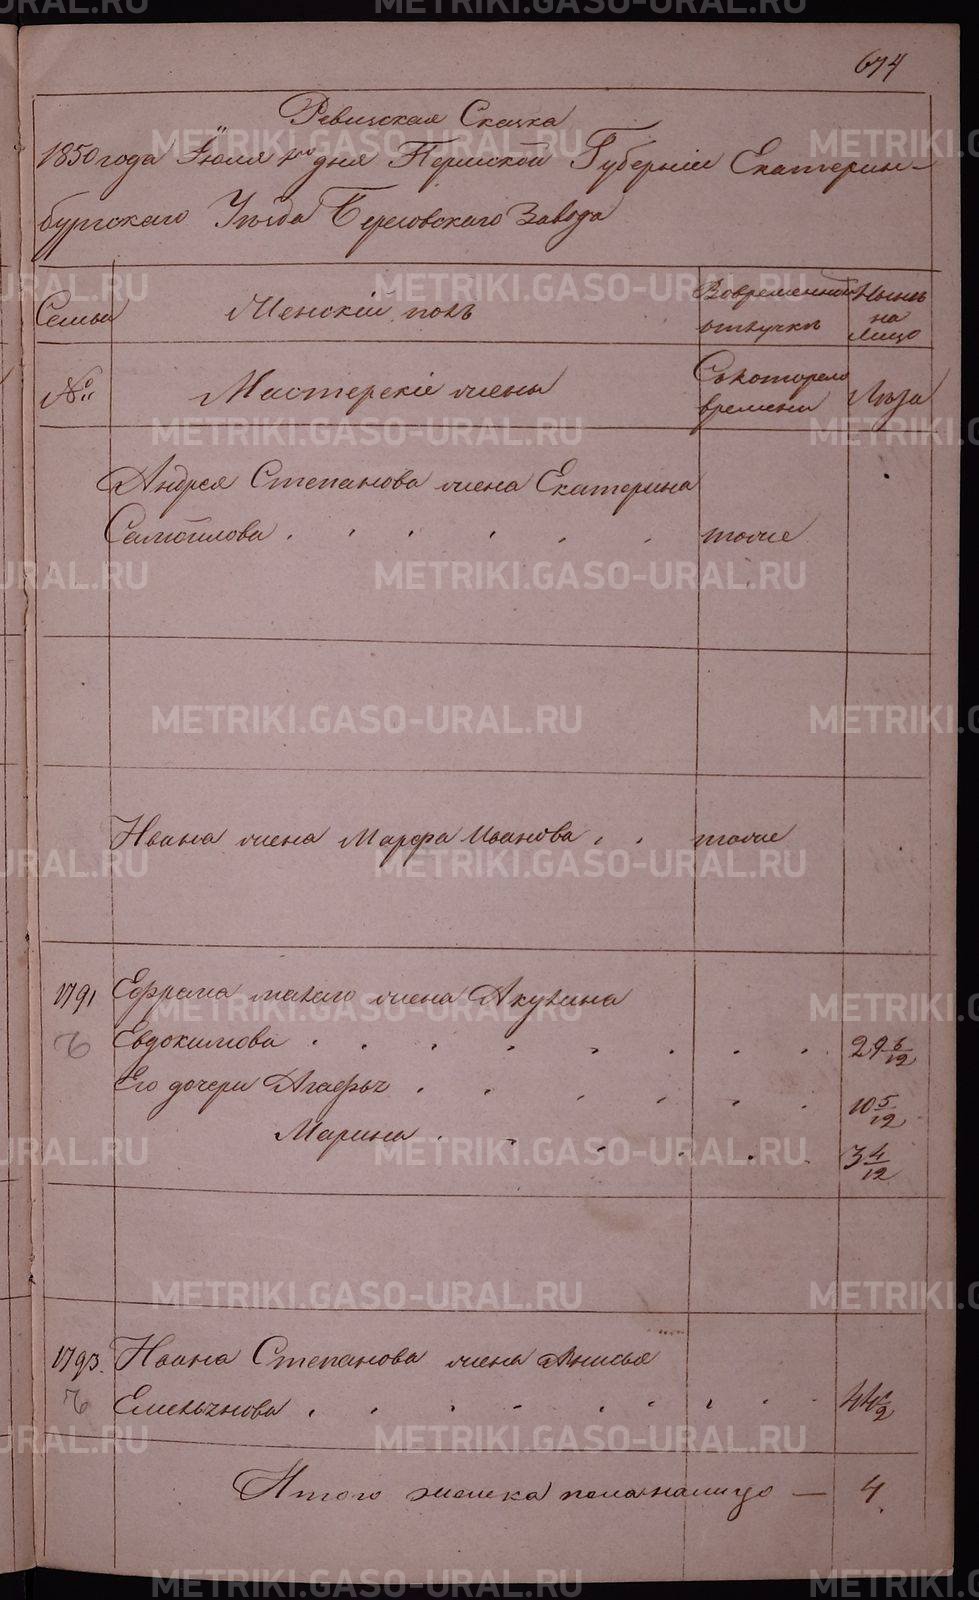 674
Ревизская Сказка
1850 года Іюля дня Пермской Губерніи Екатерин-
бургскаго Уѣзда Березовскаго Завода
Семьи
Женскій полъ
Вовременной отлучкѣ
Нынѣ на лицо
№
Мастерскіе жены
Съкотораго времени
Лѣта
Андрея Степанова жена Екатерина
Самойлова . . . . . . тоже
Ивана жена Марфа Иванова . . тоже
1791 Ефрема жена Акулина
Евдокимова . . . . . . . . 29 6/12
Его дочери Агафья . . . . . . 10 5/12
Марина . . . . . . 3 4/12
1793. Ивана Степанова жена Анисья
Емельянова . . . . . . . . 44
Итого женска пола налицо — 4
METRIKI.GASO-URAL.RU